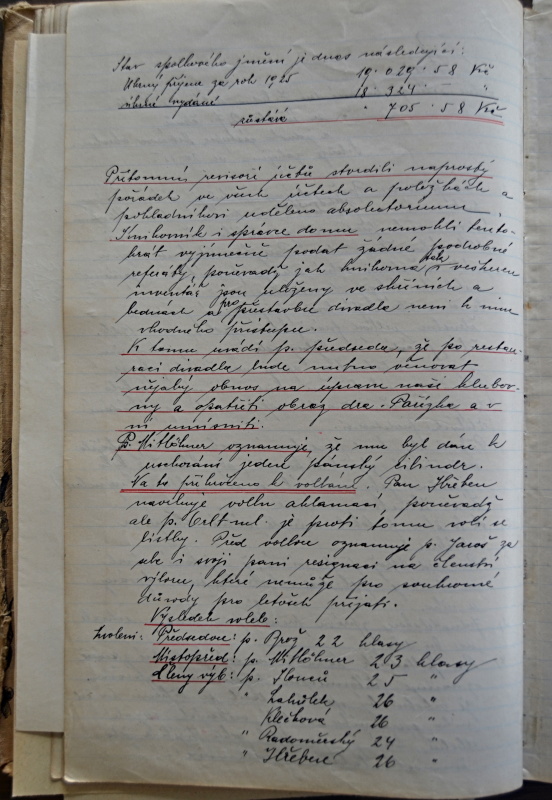 Stav spolkového jmění je dnes následující:
Úhrný příjem za rok 1925 19.029.58 Kč
úhrné vydání 18.324.- "
zůstává " 705.58 Kč
Přítomní revisoři účtů stvrdili naprostý
pořádek ve všech účtech a položkách a
pokladníkovi uděleno absolutorium.
Knihovník i správce domu nemohli tento-
krát výjimečně podat žádné podrobné
referáty, poněvadž jak knihovna tak i veškeren
inventář jsou uloženy ve skříních a
bednách a pro přestavbu divadla není k nim
vhodného přístupu.
K tomu uvádí p. předseda, že po restau-
raci divadla bude nutno věnovat
nějaký obnos na úpravu naší klubov-
ny a opatřiti obraz dra. Pařízka a v
ní umístiti.
P. Mitlöhner oznamuje, že mu byl dán k
uschování jeden pánský cilindr.
Na to přikročeno k volbám. Pan Hřeben
navrhuje volbu aklamací, poněvadž
ale p. ml. je proti tomu volí se
lístky. Před volbou oznamuje p. Jaroš za
sebe i svoji paní resignaci na členství
výboru, které nemůže pro soukromé
důvody pro letošek přijati.
Výsledek voleb:
zvoleni: Předsedou: p. Brož 22 hlasy
Místopřed: p. Mitlöhner 23 hlasy
Členy výb: p. 25 "
" 26 "
Klečková 26 "
" Radoměrský 24 "
" Hřeben 26 "